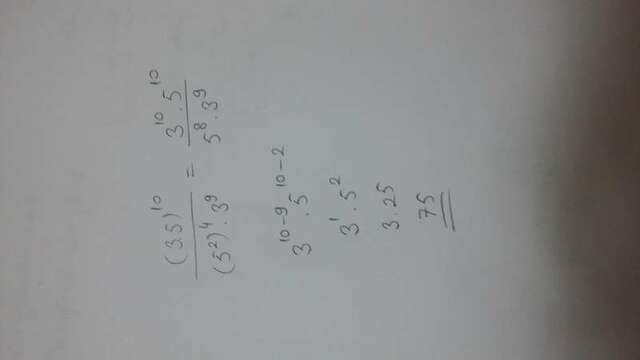 (3.5)¹⁰ / (5²)⁴ . 3⁹ = 3¹⁰ . 5¹⁰ / 5⁸ . 3⁹
3¹⁰⁻⁹ . 5¹⁰⁻²
3¹ . 5²
3 . 25
75